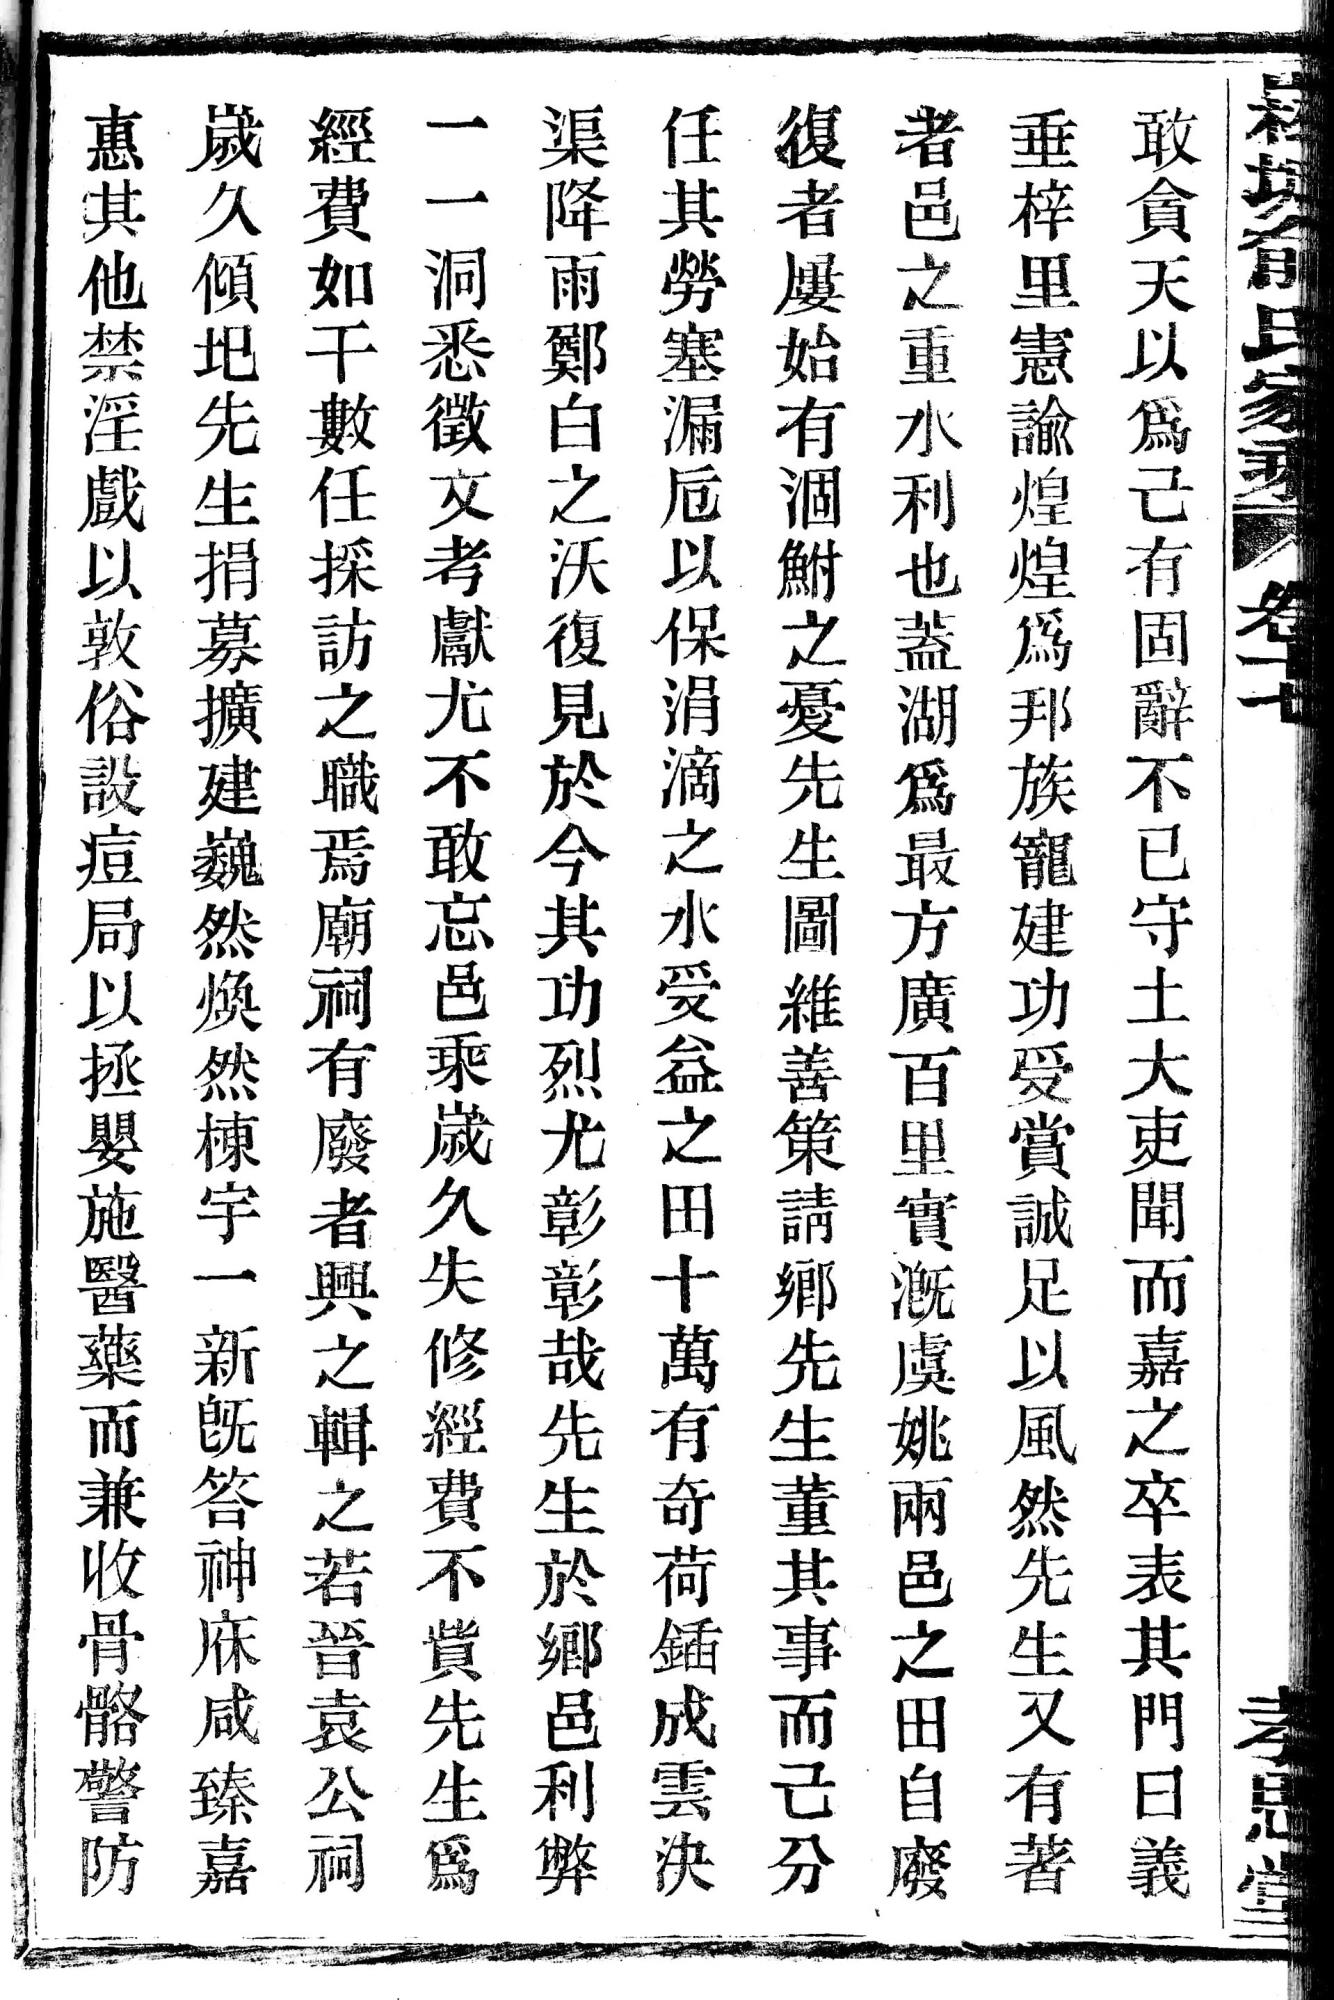 氏家乘 卷十七 孝思堂
敢貪天以爲己有固辭不已守土大吏聞而嘉之卒表其門曰義
垂梓里憲諭煌煌爲邦族寵建功受賞誠足以風然先生又有著
者邑之重水利也蓋湖爲最方廣百里實漑虞姚兩邑之田自廢
復者屢始有涸鮒之憂先生圖維善策請鄉先生董其事而己分
任其勞塞漏卮以保涓滴之水受益之田十萬有奇荷鍤成雲決
渠降雨鄭白之沃復見於今其功烈尤彰彰哉先生於鄉邑利弊
一一洞悉徵文考獻尤不敢忘邑乘歲久失修經費不貲先生爲
經費如干數任採訪之職焉廟祠有廢者興之輯之若晉袁公祠
歲久傾圯先生捐募擴建巍然煥然棟宇一新旣答神庥咸臻嘉
惠其他禁淫戲以敦俗設痘局以拯嬰施醫藥而兼收骨骼警防